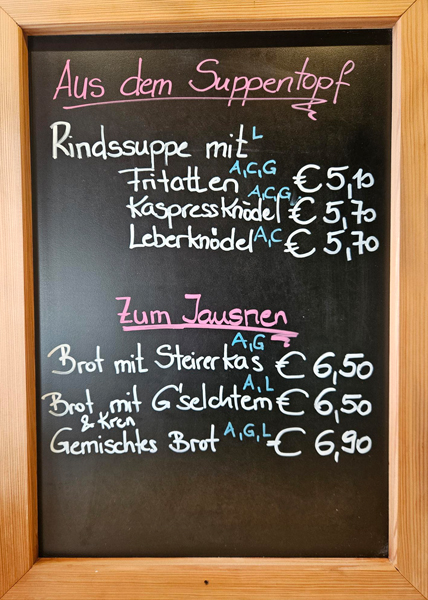 Aus dem Suppentopf
Rindssuppe mit L
Fritatten A,C,G € 5,10
Kaspressknödel A,C,G € 5,70
Leberknödel A,C € 5,70
Zum Jausnen
Brot mit Steirerkas A,G € 6,50
Brot mit G'selchtem A,L € 6,50
& Kren
Gemischtes Brot A,G,L € 6,90